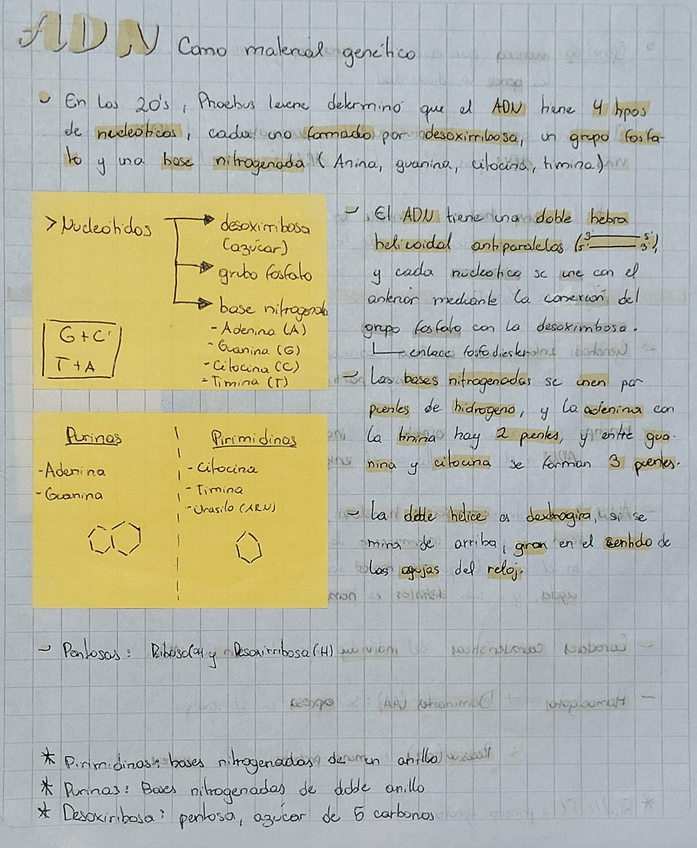 ADN Como material genético
En los 20's, Phoebus levene determinó que el ADN tiene 4 tipos
de nucleóticos, cada uno formado por desoxirribosa, un grupo fosfa-
to y una base nitrogenada (Anina, guanina, citocina, timina)
> Nucleótidos
desoxirribosa
(azúcar)
grupo fosfato
base nitrogenada
- Adenina (A)
- Guanina (G)
- Citocina (C)
- Timina (T)
G + C
T + A
Purinas
- Adenina
- Guanina
Pirimidinas
- Citocina
- Timina
- Urasilo (ARN)
- El ADN tiene una doble hebra
helicoidal antiparalelas (3' 5' 5' 3'),
y cada nucleotico se une con el
anterior mediante la conexión del
grupo fosfato con la desoxirribosa.
enlace fosfodiester
- Las bases nitrogenadas se unen por
puentes de hidrogeno, y la adenina con
la timina hay 2 puentes, y entre gua-
nina y citocina se forman 3 puentes.
- La doble hélice es dextrogira, si se
mira de arriba, giran en el sentido de
las agujas del reloj.
- Pentosas: Ribosa(OH) y Desoxirribosa (H)
* Pirimidinas: bases nitrogenadas de un anillo
* Purinas: Bases nitrogenadas de doble anillo
* Desoxiribosa: pentosa, azúcar de 5 carbonos